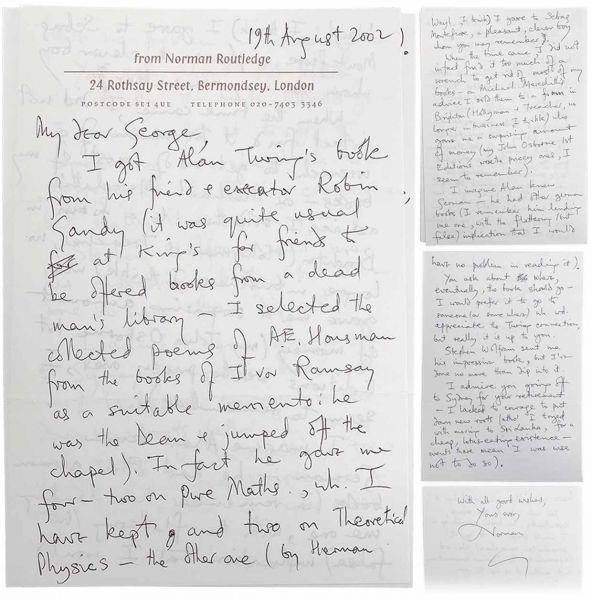 19th August 2002
from Norman Routledge
24 Rothsay Street, Bermondsey, London
POSTCODE SE1 4UE TELEPHONE 020-7403 3346
My dear George,
I got Alan Turing's book
from his friend & executor Robin
Gandy (it was quite usual
at King's for friends to
be offered books from a dead
man's library — I selected the
collected poems of A.E. Housman
from the books of Ivor Ramsay
as a suitable memento: he
was the Dean & jumped off the
chapel). In fact he gave me
four — two on Pure Maths., wh. I
have kept, and two on Theoretical
Physics — the other one (by Herman
Weyl, I think) I gave to Sebag
Montefiore, a pleasant, clever boy
whom you may remember).
When the time came I did not
in fact find it too much of a
wrench to get rid of most of my
books — on Michael Meredith's
advice I sold them to a firm in
Brighton (Holleyman & Treacher, no
longer in business, I think) who
gave me a surprising amount
of money (my John Osborne 1st
Editions were pricey ones, I
seem to remember).
I imagine Alan knew
German — he had other german
books (I remember him lending
me one, with the flattering (but
false) implication that I would
have no problem in reading it).
You ask about where,
eventually, the book should go —
I would prefer it to go to
someone (or some where) wh. wd.
appreciate the Turing connection,
but really it is up to you.
Stephen Wolfram sent me
his impressive book, but I've
done no more than dip into it.
I admire you going off
to Sydney for your retirement
— I lacked to courage to put
down new roots, tho' I toyed
with moving to Sri Lanka, for a
cheap, lotus-eating existence —
events have mean I was wise
not to do so).
With all good wishes,
Yours ever,
Norman